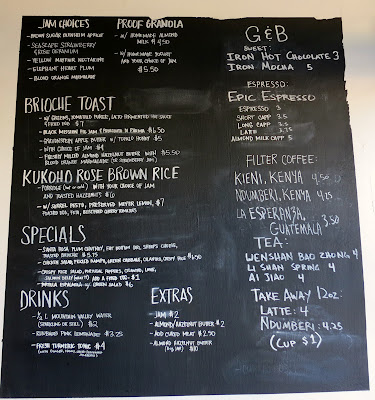 JAM CHOICES
- BROWN SUGAR BLENHEIM APRICOT
- SEASCAPE STRAWBERRY
& ROSE GERANIUM
- YELLOW NECTARINE
- ELEPHANT HEART PLUM
- BLOOD ORANGE MARMALADE
PROOF GRANOLA
- W/ HOMEMADE ALMOND
MILK $4.50
- W/ HOMEMADE YOGURT
AND YOUR CHOICE OF JAM
$5.50
BRIOCHE TOAST
- W/ GREENS, TOMATILLO PUREE, LACTO FERMENTED HOT SAUCE
& FRIED EGG $7
- BLACK MISSION FIG JAM & $6.50
- APPLE BUTTER W/ TOFULO HONEY $5
- WITH CHOICE OF JAM $4
- FRESHLY MILLED ALMOND HAZELNUT BUTTER WITH $5.50
BLOOD ORANGE MARMALADE (OR STRAWBERRY JAM)
KOKUHO ROSE BROWN RICE
- PORRIDGE WITH YOUR CHOICE OF JAM
AND TOASTED HAZELNUTS $6
- W/ SORREL PESTO, PRESERVED MEYER LEMON, $7
POACHED EGG, FETA,
SPECIALS
- SANTA ROSA PLUM CHUTNEY,
TOASTED BRIOCHE $5.75
- CHICKEN SALAD, PICKLED RAMPS, GREEN CABBAGE, CILANTRO, CRISPY RICE $6.50
- CRISPY RICE SALAD, CUCUMBER, LIME,
AND A FRIED EGG
- TORTILLA ESPAÑOLA W/ GREEN SALAD $6
DRINKS
- 1/2 L MOUNTAIN VALLEY WATER
(SPARKLING OR STILL) $2
- PINK LEMONADE $3.75
- FRESH TURMERIC TONIC $4
EXTRAS
- JAM $2
- ALMOND/HAZELNUT BUTTER $2
- ADD CURED MEAT $2.50
- ALMOND HAZELNUT BUTTER
$10
G & B
SWEET:
IRON HOT CHOCOLATE 3
IRON MOCHA 5
ESPRESSO:
EPIC ESPRESSO
ESPRESSO 3
SHORT CAPP 3.5
LONG CAPP 3.5
LATTE 3.75
ALMOND MILK CAPP 5
FILTER COFFEE:
KIENI, KENYA 4.50
NDUMBERI, KENYA 4.25
LA ESPERANZA,
GUATEMALA 3.50
TEA:
WENSHAN BAO ZHONG 4
LI SHAN SPRING 4
AI JIAO 4
TAKE AWAY 12oz:
LATTE: 4
NDUMBERI: 4.25
(CUP $1)